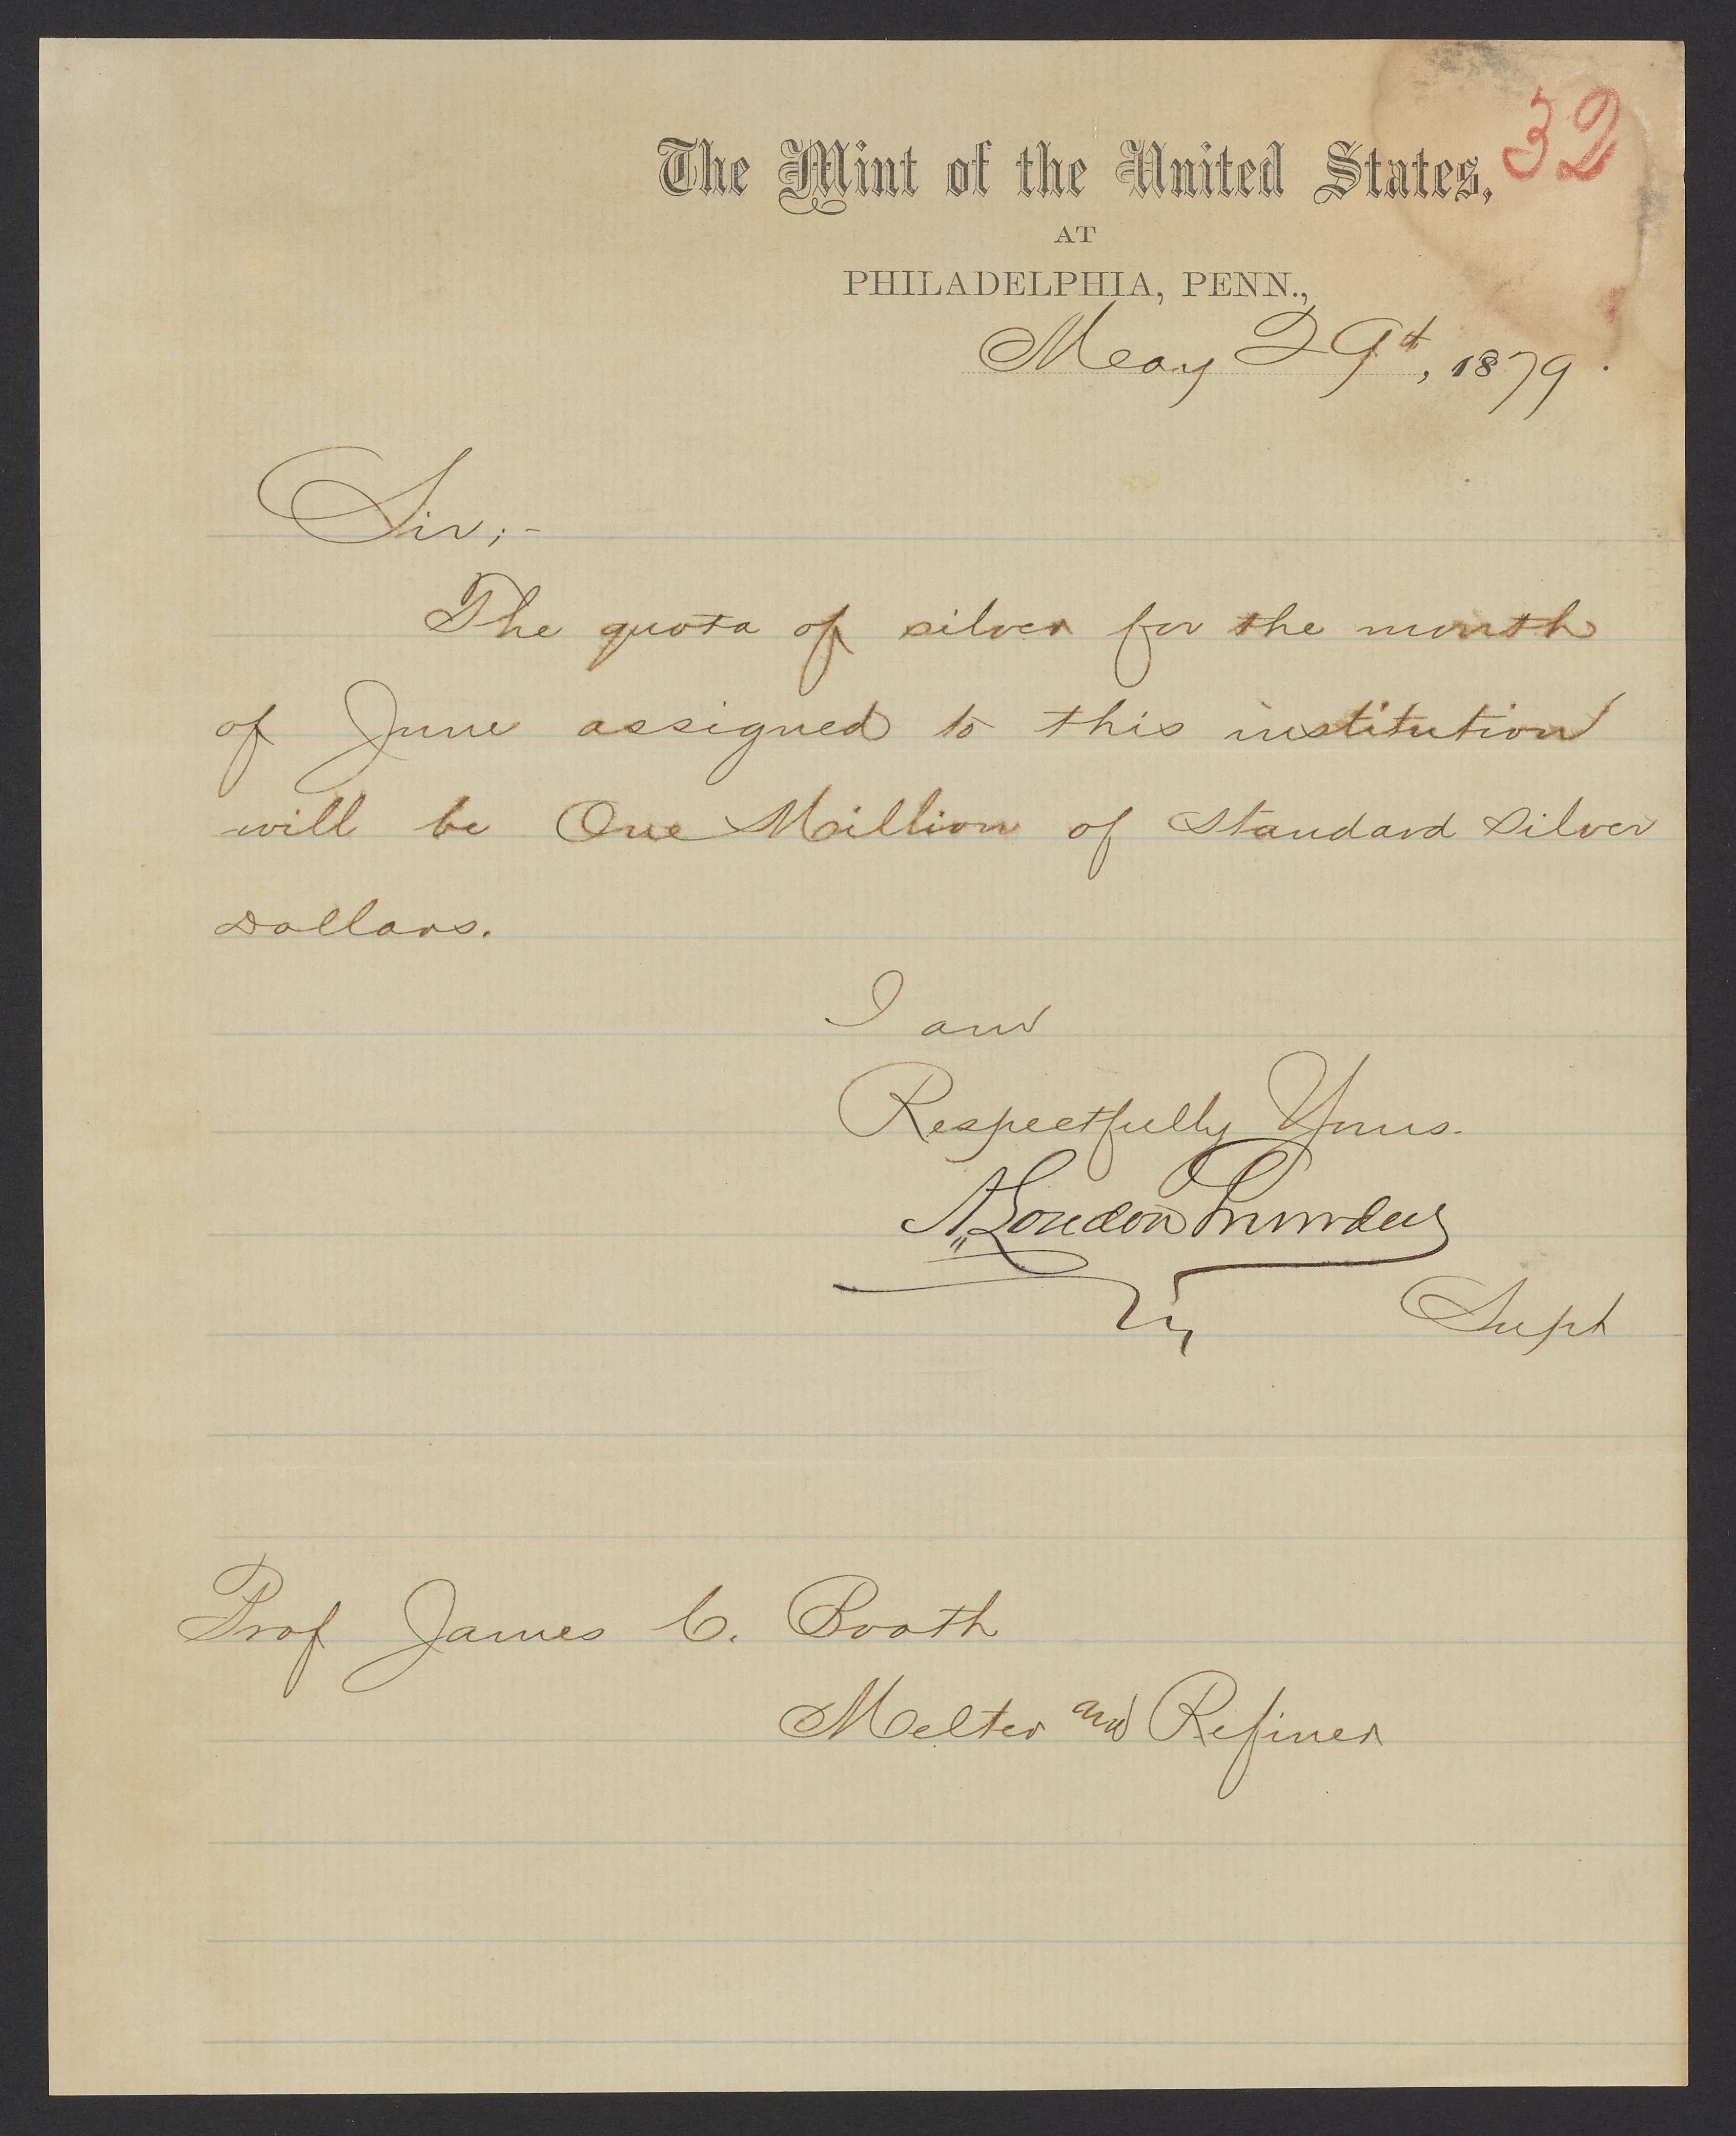 32
The Mint of the United States,
AT
PHILADELPHIA, PENN.,
May 29th, 1879.
Sir;-
The quota of silver for the month
of June assigned to this institution
will be One Million of Standard Silver
Dollars.
I am
Respectfully Yours.
A. Loudon Snowden
Supt
Prof James C. Booth
Melter and Refiner